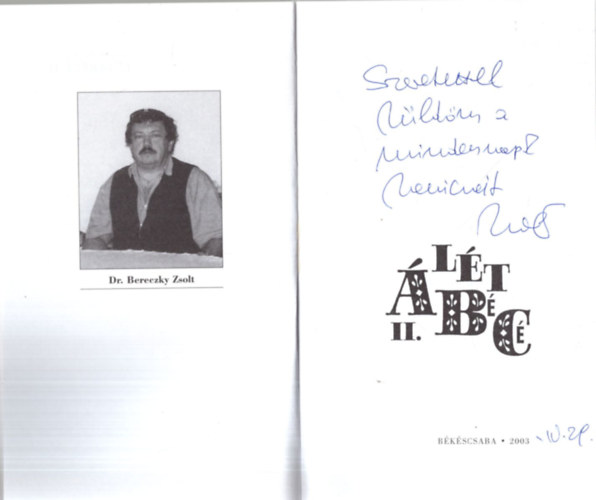 Dr. Bereczky Zsolt
Szeretettel
küldöm a
mindennapok
Zsolt
LÉT
ÁBÉCÉ
II.
BÉKÉSCSABA • 2003 . IV. 29.